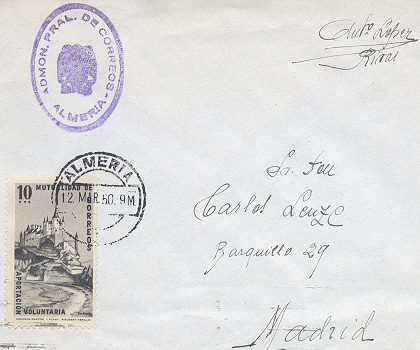 ADMON. PRAL. DE CORREOS
ALMERIA
Lopez
Rivas
ALMERIA
12. MAR. 50. 9M
10
MUTUALIDAD DE
CORREOS
APORTACION
VOLUNTARIA
Sr. Don
Carlos Lenze
Barquillo 29
Madrid